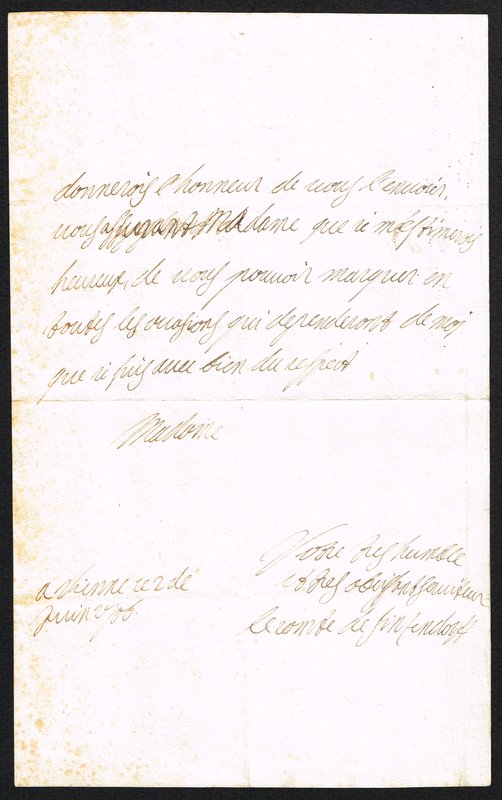 donnerois l'honneur de vous l'envoier,
vous assurant Madame que ie m'estimerois
heureux, de vous pouvoir marquer en
toutes les occasions qui dependeront de moy
que ie suis avec bien du respect
Madame
Votre tres humble
et tres obeissant serviteur
le comte de Sinzendorff
a Vienne ce 2 de
Juin 1706.